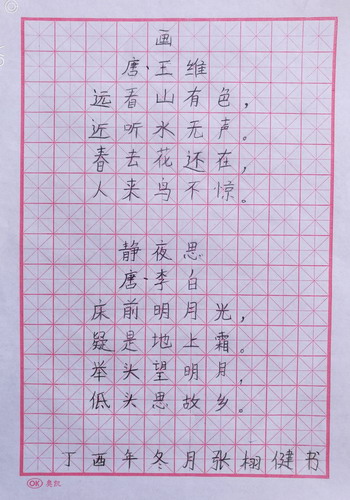 画
唐·王维
远看山有色，
近听水无声。
春去花还在，
人来鸟不惊。
静夜思
唐·李白
床前明月光，
疑是地上霜。
举头望明月，
低头思故乡。
丁酉年冬月张栩健书
OK 奥凯